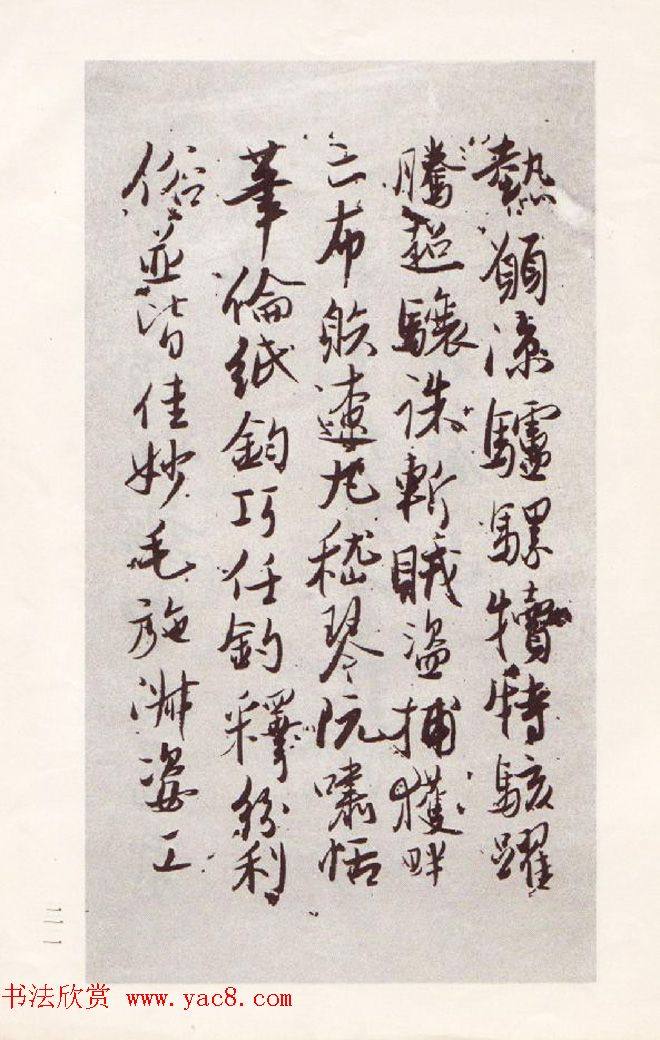 熱願涼驢騾犢特駭躍
騰超驤誅斬賊盜捕獲畔
亡布射遼丸嵇琴阮嘯恬
筆倫紙鈞巧任釣釋紛利
俗並皆佳妙毛施淑姿工
二一
书法欣赏 www.yac8.com